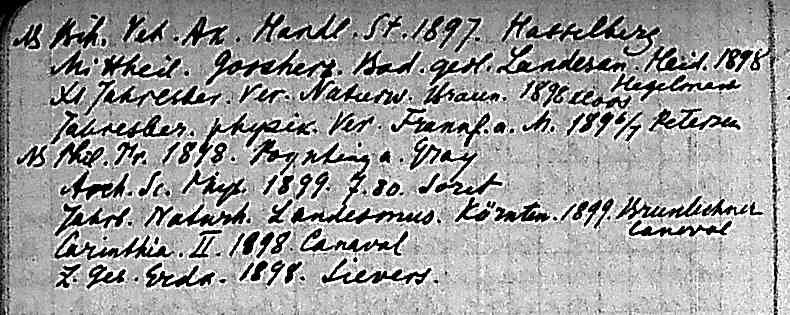 NB Bih. Vet. Ak. Handl. St. 1897. Hasselberg
Mittheil. Grossherz. Bad. geol. Landesan. Heid. 1898
XI Jahresber. Ver. Naturw. Braun. 1898 Kloos Hegelmann
Jahresber. physik. Ver. Frankf. a. M. 1896/7 Petersen
NB Phil. Tr. 1898. Poynting a. Gray
Arch. Sc. Phys. 1899. 7.80. Soret
Jahrb. Naturh. Landesmus. Kärnten. 1899. Brunlechner
Canaval
Carinthia. II. 1898 Canaval
Z. Ges. Erdk. 1898. Sievers.